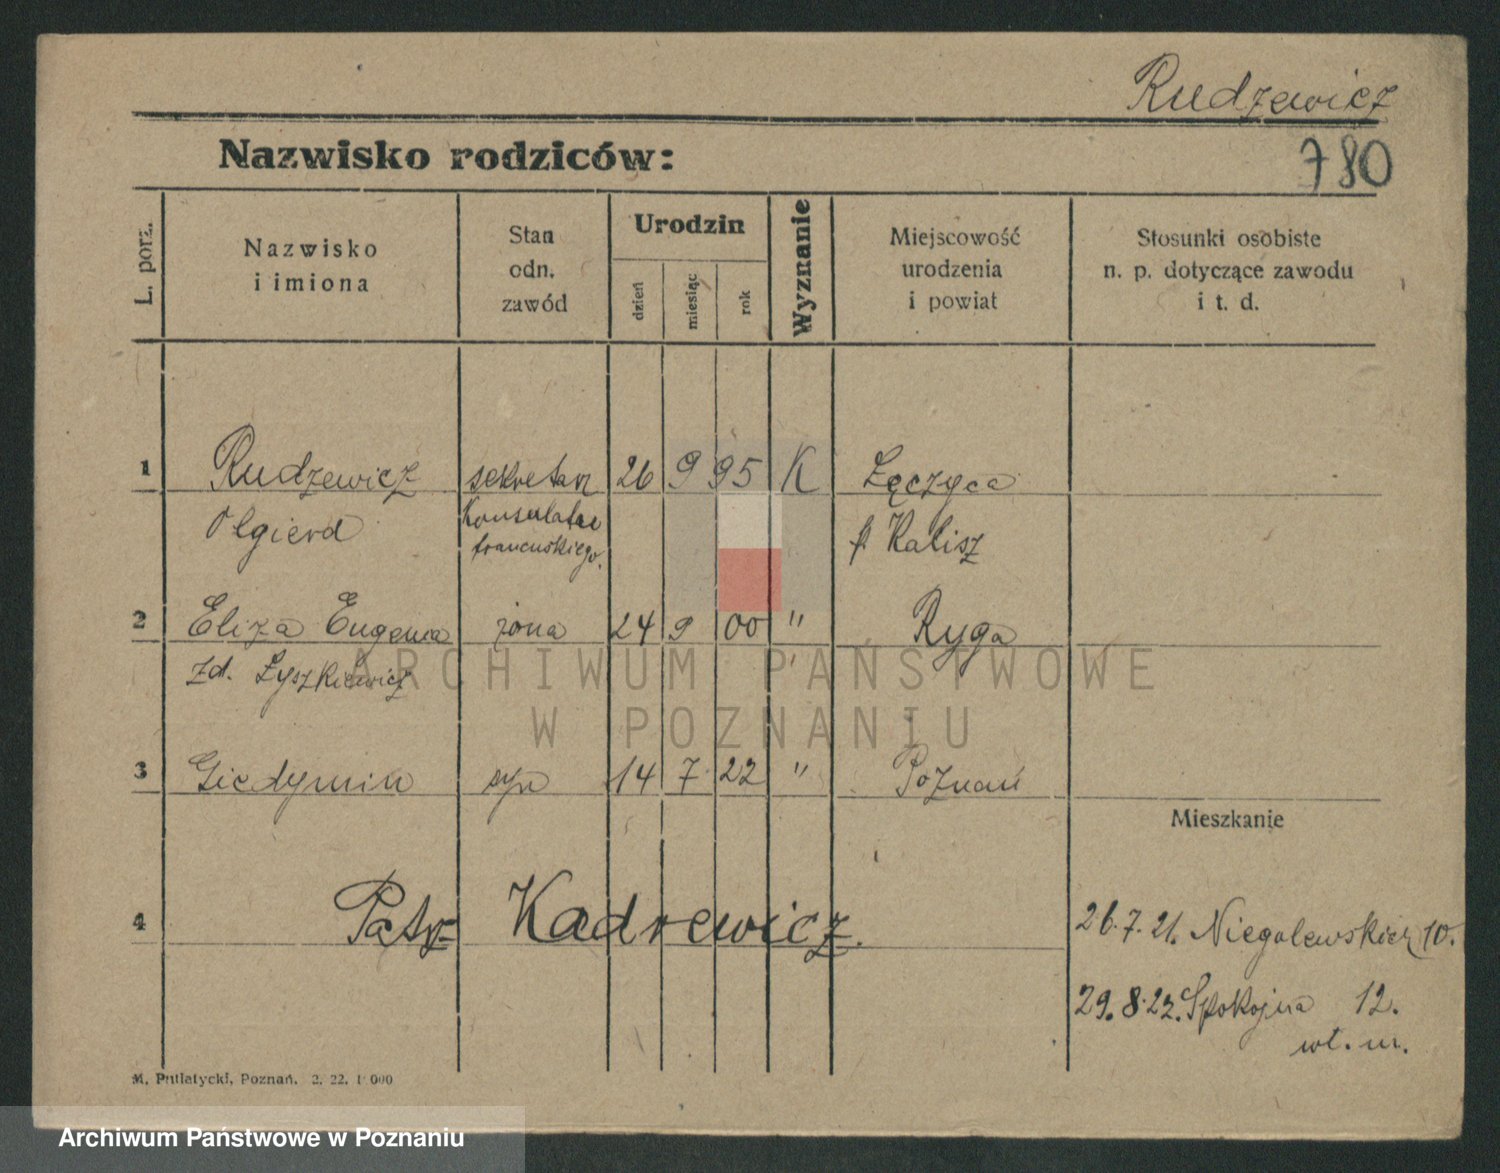 Rudzewicz
Nazwisko rodziców:
780
L. porz.
Nazwisko
i imiona
Stan
odn.
zawód
Urodzin
dzień
miesiąc
rok
Wyznanie
Miejscowość
urodzenia
i powiat
Stosunki osobiste
n. p. dotyczące zawodu
i t. d.
1 Rudzewicz sekretarz 26 9 95 K Łęczyca
Olgierd Konsulatu p. Kalisz
francuskiego.
2 Eliza Eugenia żona 24 9 00 " Ryga
zd. Łyszkiewicz
3 Giedymin syn 14 7 22 " Poznań
Mieszkanie
4 Patrz Kadrewicz.
26.7.21. Niegolewskich 10.
29.8.22. Spokojna 12.
wł. m.
M. Putiatycki, Poznań. 2. 22. 1 000
ARCHIWUM PAŃSTWOWE
W POZNANIU
Archiwum Państwowe w Poznaniu